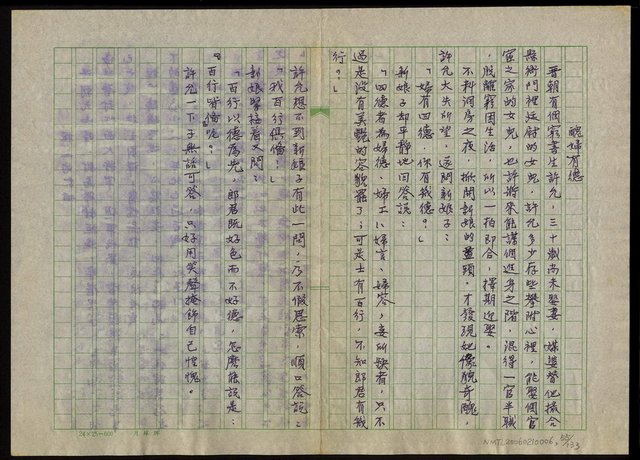 醜婦有德
晉朝有個窮書生許允，三十歲尚未娶妻，媒婆替他撮合
縣衙門裡廷尉的女兒，許允多少存些攀附心裡，能娶個官
宦之家的女兒，也許將來能謀個進身之階，混得一官半職
，脫離窮困生活，所以一拍即合，擇期迎娶。
不料洞房之夜，掀開新娘的蓋頭，才發現她像貌奇醜，
許允大失所望，遂問新娘子：
「婦有四德，你有幾德？」
新娘子卻平靜地回答說：
「四德者為婦德、婦工、婦言、婦容，妾所缺者，只不
過是沒有美艷的容貌罷了；可是士有百行，不知郎君有幾
行？」
許允想不到新娘子有此一問，乃不假思索，順口答說：
「我百行俱備！」
新娘緊接着又問：
「百行以德為先，郎君既好色而不好德，怎麼能說是：
『百行皆備呢？』」
許允一下子無話可答，只好用笑聲掩飾自己惶愧。
24×25=600
NMTL20060210006